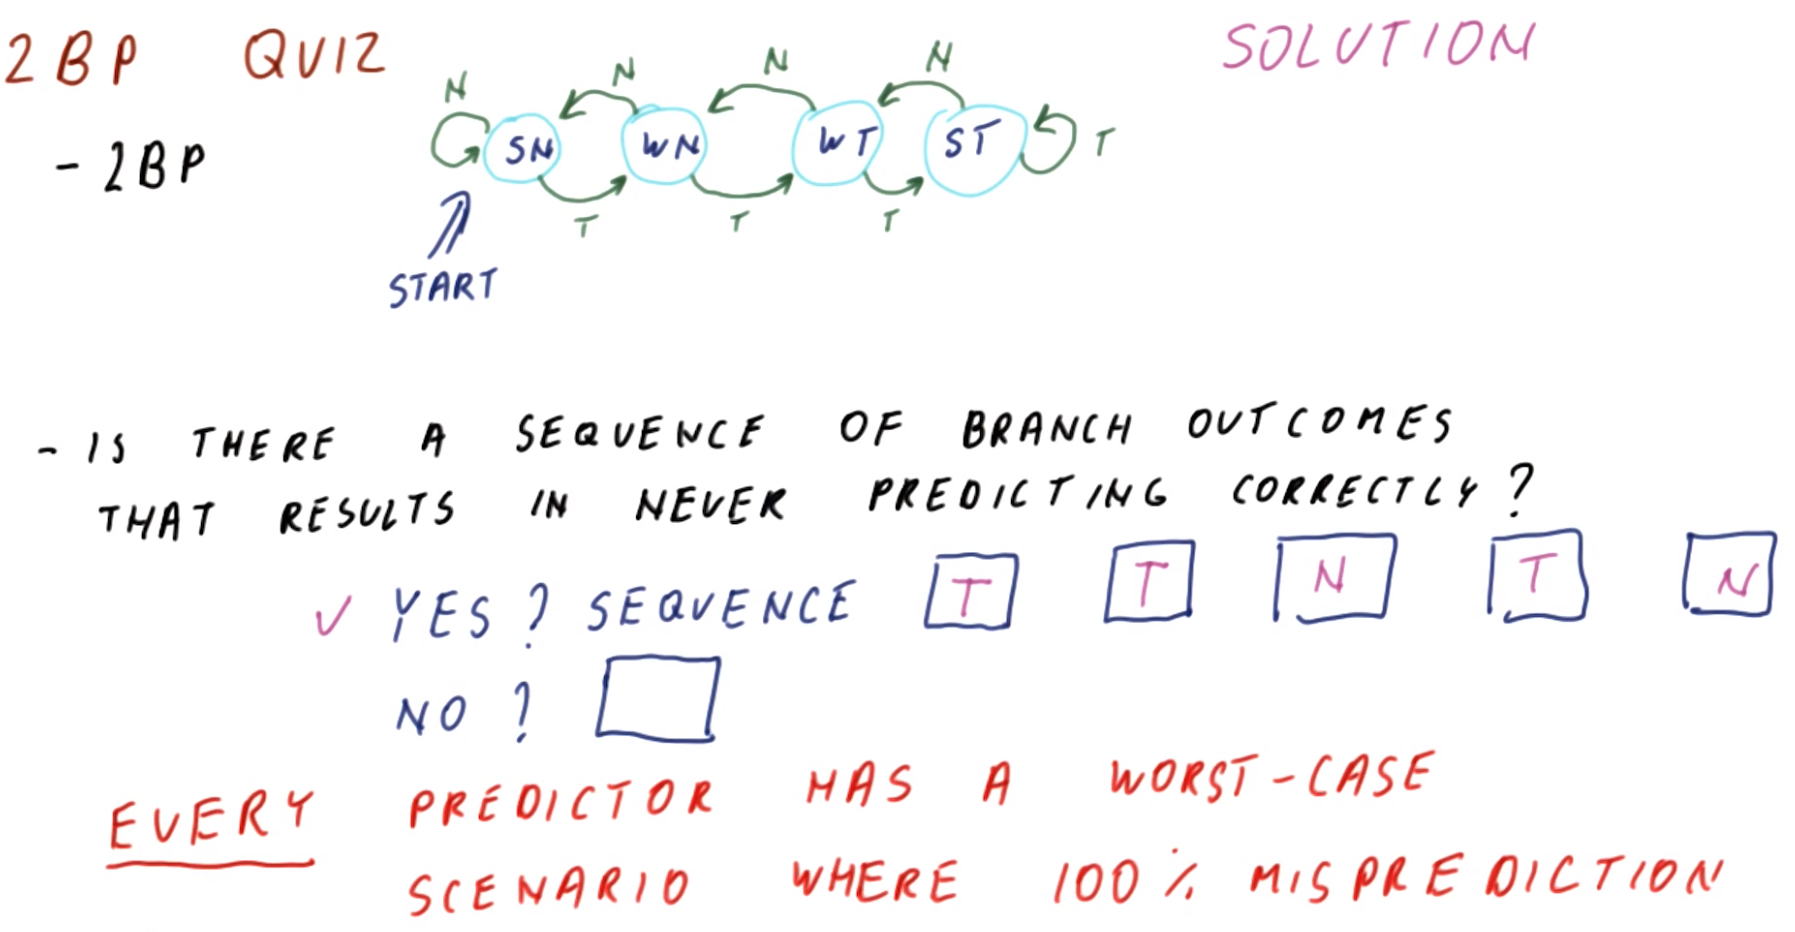 2BP QUIZ
SOLUTION
N N N N
- 2BP
SN WN WT ST T
T T T
START
- IS THERE A SEQUENCE OF BRANCH OUTCOMES
THAT RESULTS IN NEVER PREDICTING CORRECTLY?
✓ YES? SEQUENCE T T N T N
NO?
EVERY PREDICTOR HAS A WORST-CASE
SCENARIO WHERE 100% MISPREDICTION